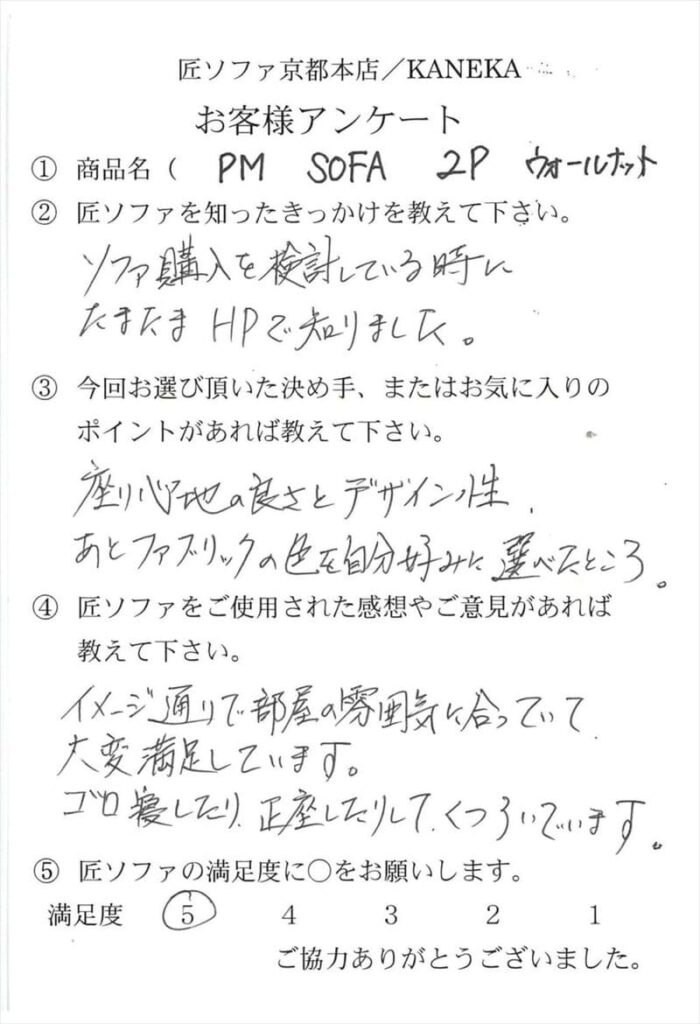 匠ソファ京都本店／KANEKA
お客様アンケート
① 商品名（ PM SOFA 2P ウォールナット
② 匠ソファを知ったきっかけを教えて下さい。
ソファ購入を検討している時に
たまたまHPで知りました。
③ 今回お選び頂いた決め手、またはお気に入りの
ポイントがあれば教えて下さい。
座り心地の良さとデザイン性、
あとファブリックの色を自分好みに選べたところ。
④ 匠ソファをご使用された感想やご意見があれば
教えて下さい。
イメージ通りで部屋の雰囲気に合っていて
大変満足しています。
ゴロ寝したり、正座したりして、くつろいでいます。
⑤ 匠ソファの満足度に○をお願いします。
満足度 5 4 3 2 1
ご協力ありがとうございました。